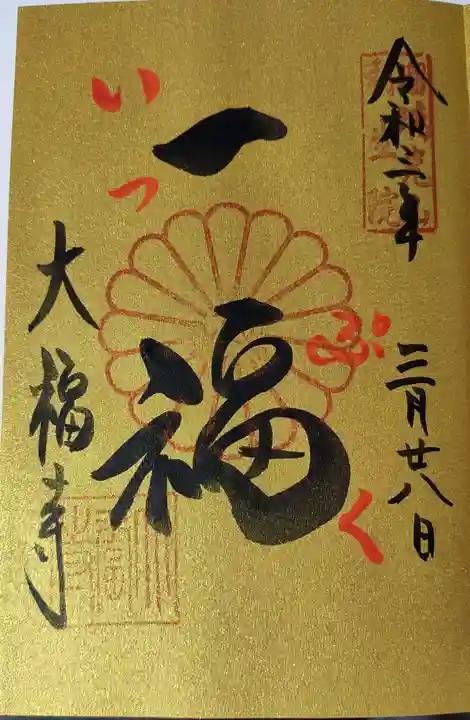 令和三年
三月廿八日
一福
いっぷく
大福寺